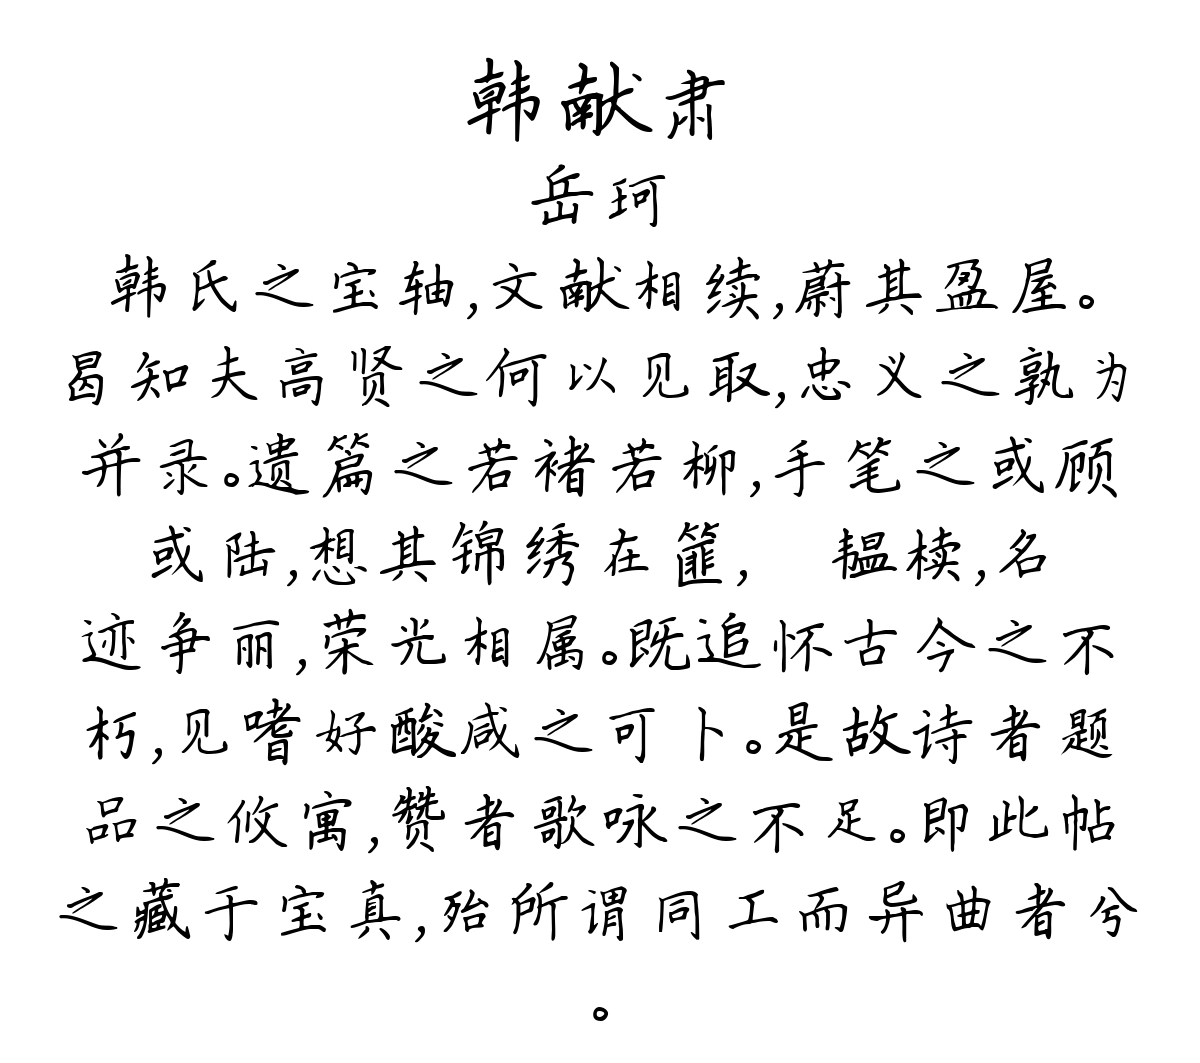 韩献肃
岳珂
韩氏之宝轴,文献相续,蔚其盈屋。
曷知夫高贤之何以见取,忠义之孰为
并录。遗篇之若褚若柳,手笔之或顾
或陆,想其锦绣在篚, 韫椟,名
迹争丽,荣光相属。既追怀古今之不
朽,见嗜好酸咸之可卜。是故诗者题
品之攸寓,赞者歌咏之不足。即此帖
之藏于宝真,殆所谓同工而异曲者兮
。